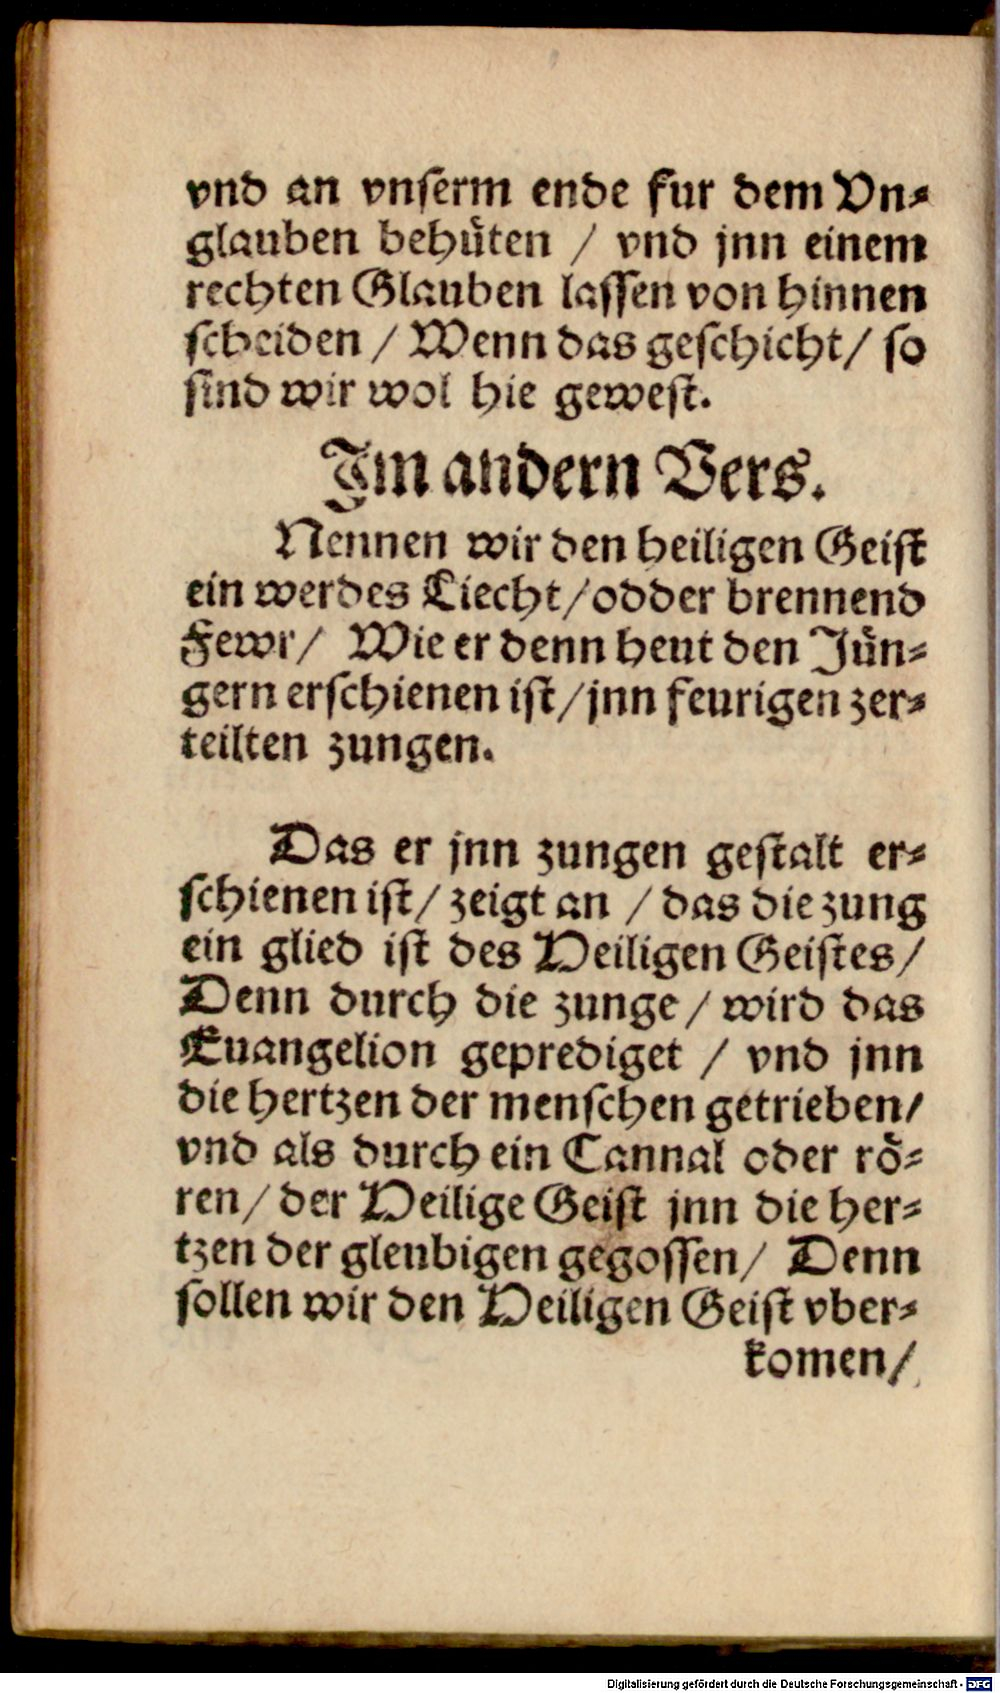 vnd an vnſerm ende fur dem Vn⸗
glauben behuͤten / vnd jnn einem
rechten Glauben laſſen von hinnen
ſcheiden / Wenn das geſchicht / ſo
ſind wir wol hie geweſt.
Im andern Vers.
Nennen wir den heiligen Geiſt
ein werdes Liecht / odder brennend
Fewr / Wie er denn heut den Juͤn⸗
gern erſchienen iſt / jnn feurigen zer⸗
teilten zungen.
Das er jnn zungen geſtalt er⸗
ſchienen iſt / zeigt an / das die zung
ein glied iſt des Heiligen Geiſtes /
Denn durch die zunge / wird das
Euangelion geprediget / vnd jnn
die hertzen der menſchen getrieben /
vnd als durch ein Cannal oder roͤ⸗
ren / der Heilige Geiſt jnn die her⸗
tzen der gleubigen gegoſſen / Denn
ſollen wir den Heiligen Geiſt vber⸗
komen /
Digitalisierung gefördert durch die Deutsche Forschungsgemeinschaft - DFG